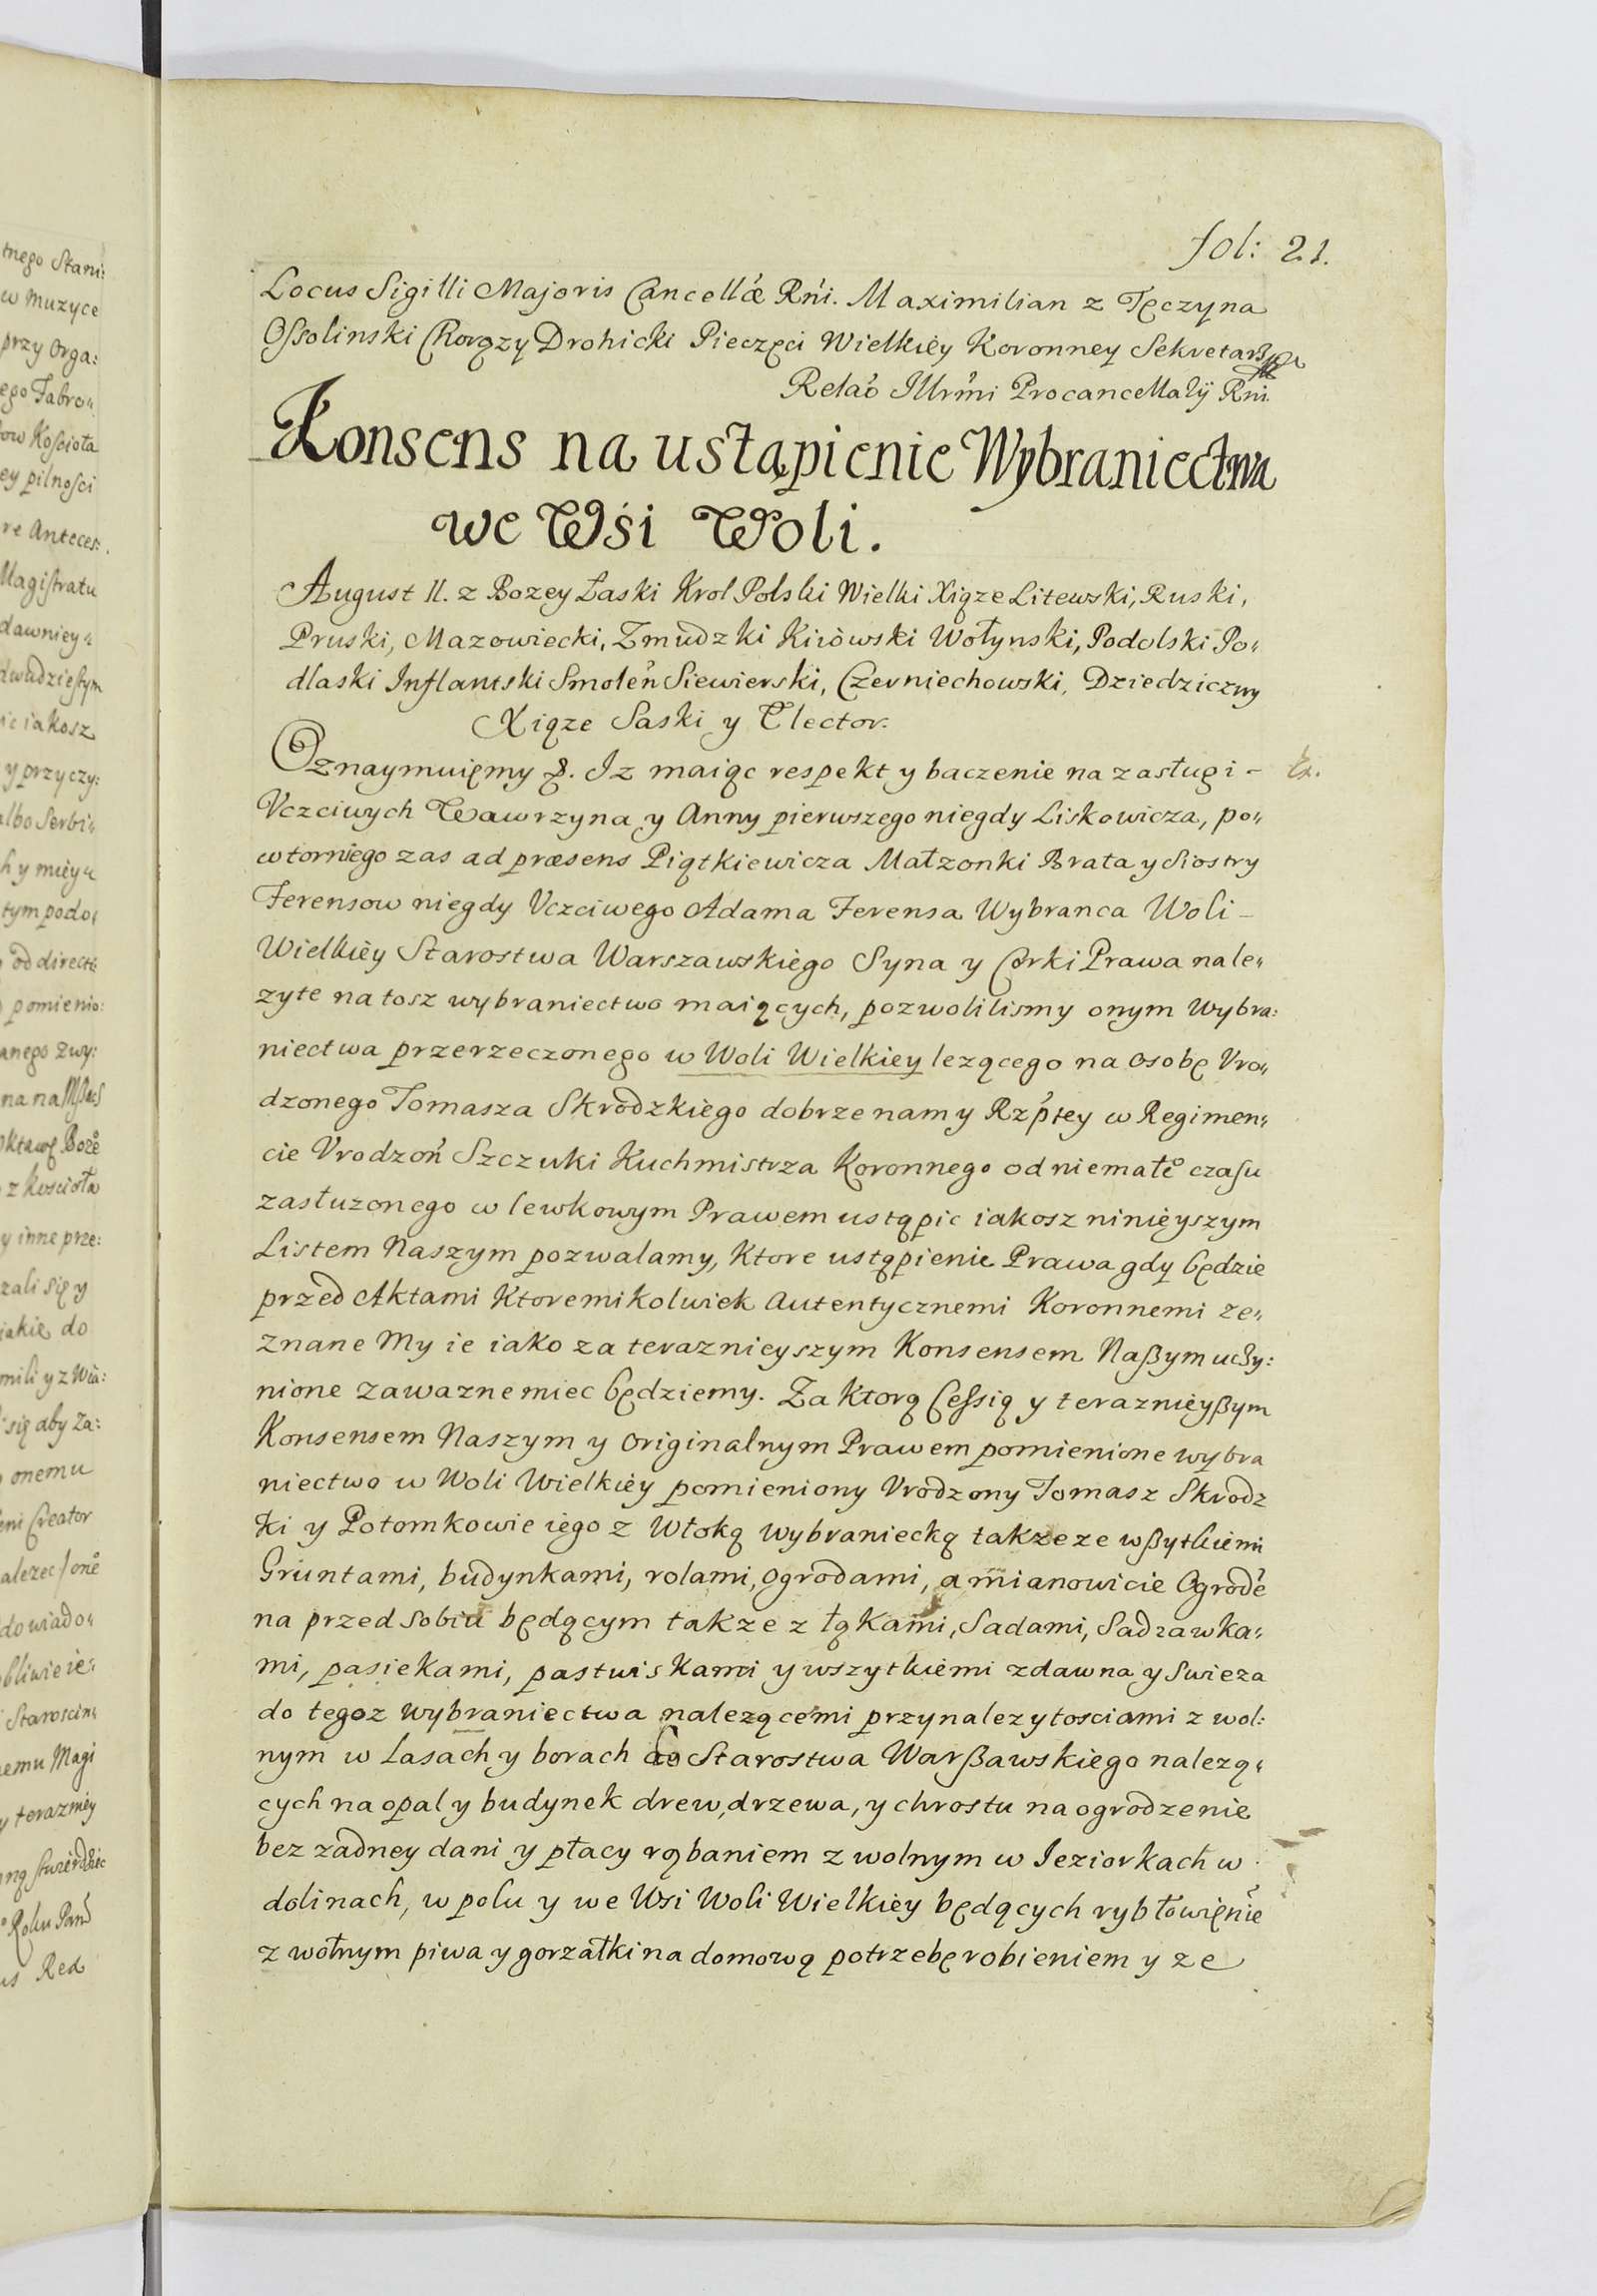 fol: 21.
Locus Sigilli Majoris Cancellæ Rńi. Maximilian z Tęczyna
Ossolinski Chorązy Drohicki Pieczęci Wielkiey Koronney Sekretarz
Relaó Illrḿi Procancellarÿ Rńi.
Konsens na ustąpienie Wybraniectwa
we Wsi Woli.
August II. z Bozey Łaski Krol Polski Wielki Xiąze Litewski, Ruski,
Pruski, Mazowiecki, Zmudzki Kiiowski Wołynski, Podolski Po„
dlaski Inflantski Smoleń Siewierski, Czerniechowski, Dziedziczny
Xiąze Saski y Elector.
Oznaymuięmy &. Iz maiąc respekt y baczenie na zasługi –
Vczciwych Wawrzyna y Anny pierwszego niegdy Liskowicza, po„
wtornięgo zas ad præsens Piątkiewicza Małzonki Brata y Siostry
Ferensow niegdy Vczciwego Adama Ferensa Wybranca Woli –
Wielkiey Starostwa Warszawskiego Syna y Corki Prawa nale„
zyte na tosz wybraniectwo maiących, pozwolilismy onym Wybra:
niectwa przerzeczonego w Woli Wielkiey lezącego na osobę Vro„
dzonego Tomasza Skrodzkiego dobrze nam y Rzṕtey w Regimen„
cie Vrodzoń Szczuki Kuchmistrza Koronnego od niemałe° czasu
zasłuzonego w lewkowym Prawem ustąpic iakosz ninięyszym
Listem Naszym pozwalamy, Ktore ustąpienie Prawa gdy będzie
przed Aktami Ktoremikolwiek Autentycznemi Koronnemi ze„
znane My ie iako za teraznieyszym Konsensem Naßym uczy:
nione zawazne miec będziemy. Za Ktorą Cessią y teraznieyßym
Konsensem Naszym y Originalnym Prawem pomienione wybra
niectwo w Woli Wielkiey pomieniony Vrodzony Tomasz Skrodz
ki y Potomkowie iego z Włoką Wybraniecką takze ze wßytkiemi
Gruntami, budynkami, rolami, ogrodami, a mianowicie Ogrodé
na przed sobiu będącym takze z łąkami, Sadami, Sadzawka„
mi, pasiekami, pastwiskami y wszytkiemi zdawna y Swieza
do tegoz Wybraniectwa nalezącemi przynalezytosciami z wol:
nym w Lasach y borach do Starostwa Warßawskiego nalezą„
cych na opal y budynek drew, drzewa, y chrostu na ogrodzenie
bez zadney dani y płacy rąbaniem z wolnym w Ieziorkach w
dolinach, w polu y we Wsi Woli Wielkiey będących ryb łowięnié
z wołnym piwa y gorzałki na domową potrzebę robieniem y ze